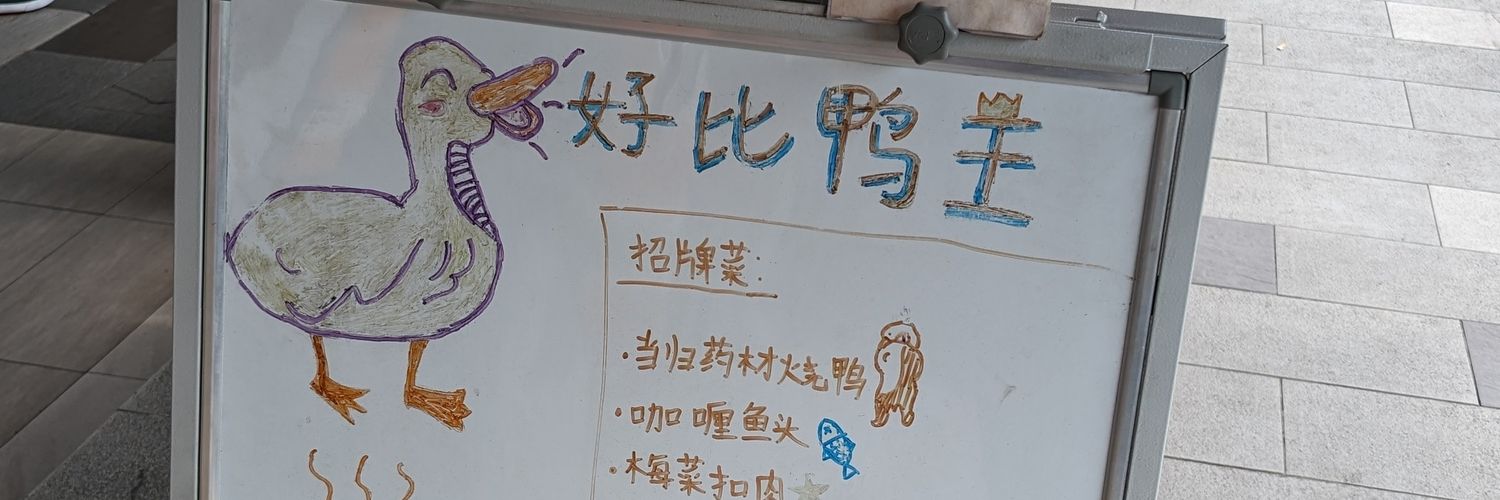 好比鸭王
招牌菜:
·当归药材烧鸭
·咖喱鱼头
·梅菜扣肉